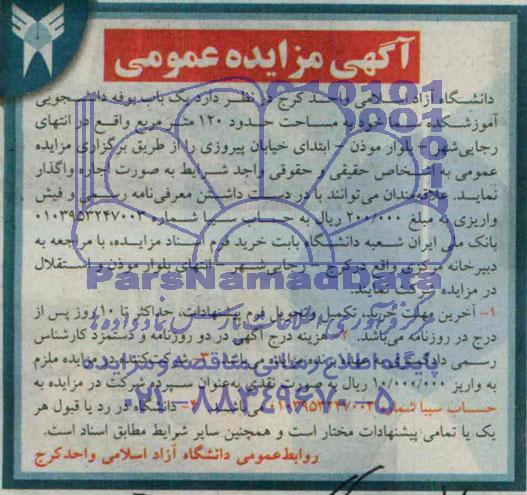 آگهی مزایده عمومی
دانشگاه آزاد اسلامی واحد کرج در نظر دارد یک باب بوفه دانشجویی
آموزشکده سما خود به مساحت حدود ۱۲۰ متر مربع واقع در انتهای
رجایی‌شهر - بلوار موذن - ابتدای خیابان پیروزی را از طریق برگزاری مزایده
عمومی به اشخاص حقیقی و حقوقی واجد شرایط به صورت اجاره واگذار
نماید. علاقه‌مندان می‌توانند با در دست داشتن معرفی‌نامه رسمی و فیش
واریزی به مبلغ ۲۰۰/۰۰۰ ریال به حساب سیبا شماره ۰۱۰۳۹۵۳۲۴۷۰۰۳
بانک ملی ایران شعبه دانشگاه بابت خرید فرم اسناد مزایده، با مراجعه به
دبیرخانه مرکزی واقع در کرج - رجایی‌شهر - انتهای بلوار موذن و استقلال
در مزایده شرکت نمایند.
۱- آخرین مهلت خرید، تکمیل و تحویل فرم پیشنهادات، حداکثر تا ۱۰ روز پس از
درج در روزنامه می‌باشد. ۲- هزینه درج آگهی در دو روزنامه و دستمزد کارشناس
رسمی دادگستری به عهده برنده مزایده می‌باشد. ۳- شرکت‌کننده در مزایده ملزم
به واریز ۱۰/۰۰۰/۰۰۰ ریال به صورت نقدی به‌عنوان سپرده شرکت در مزایده به
حساب سیبا شماره ۰۱۰۳۹۵۳۲۴۷۰۰۳ می‌باشد. ۴- دانشگاه در رد یا قبول هر
یک یا تمامی پیشنهادات مختار است و همچنین سایر شرایط مطابق اسناد است.
روابط‌عمومی دانشگاه آزاد اسلامی واحد کرج
ParsNamadData
پایگاه اطلاع رسانی مناقصه و مزایده
۰۲۱-۸۸۳۴۹۶۷۰-۵